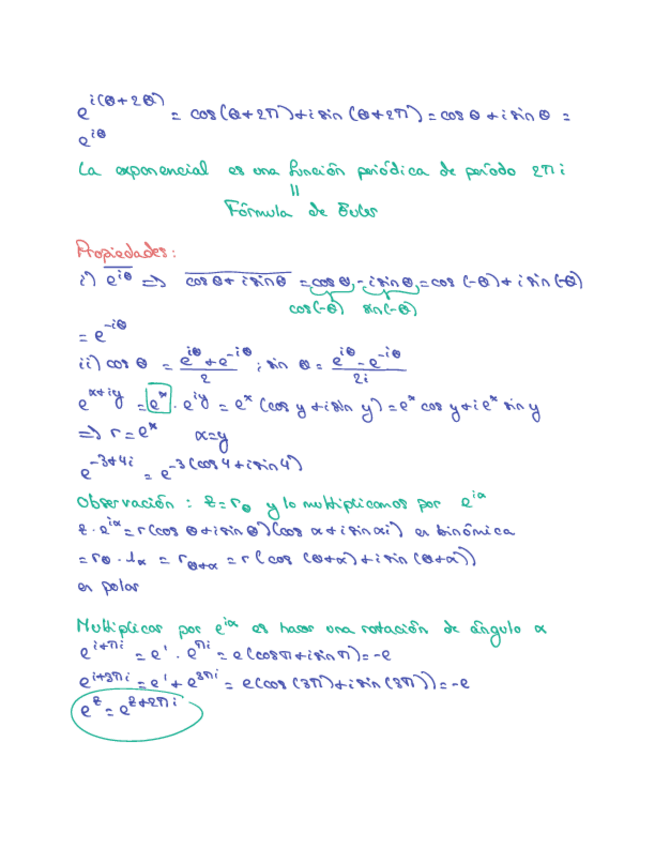 e^{i(θ+2θ)} = cos(θ+2π)+i sin(θ+2π) = cos θ + i sin θ =
e^{iθ}
La exponencial es una función periódica de período 2π i
=
Fórmula de Euler
Propiedades:
i) \overline{e^{iθ}} => \overline{cos θ + i sin θ} = cos θ - i sin θ = cos (-θ) + i sin (-θ)
cos(-θ) sin(-θ)
= e^{-iθ}
ii) cos θ = \frac{e^{iθ}+e^{-iθ}}{2} ; sin θ = \frac{e^{iθ}-e^{-iθ}}{2i}
e^{x+iy} = e^x · e^{iy} = e^x (cos y + i sin y) = e^x cos y + i e^x sin y
=> r = e^x α=y
e^{-3+4i} = e^{-3} (cos 4 + i sin 4)
Observación : z = r_θ y lo multiplicamos por e^{iα}
z · e^{iα} = r(cos θ + i sin θ)(cos α + i sin αi) en binómica
= r_θ · 1_α = r_{θ+α} = r (cos (θ+α) + i sin (θ+α))
en polar
Multiplicar por e^{iα} es hacer una rotación de ángulo α
e^{i+πi} = e^1 · e^{πi} = e(cos π + i sin π) = -e
e^{i+3πi} = e^1 + e^{3πi} = e(cos (3π) + i sin (3π)) = -e
e^z = e^{z+2πi}